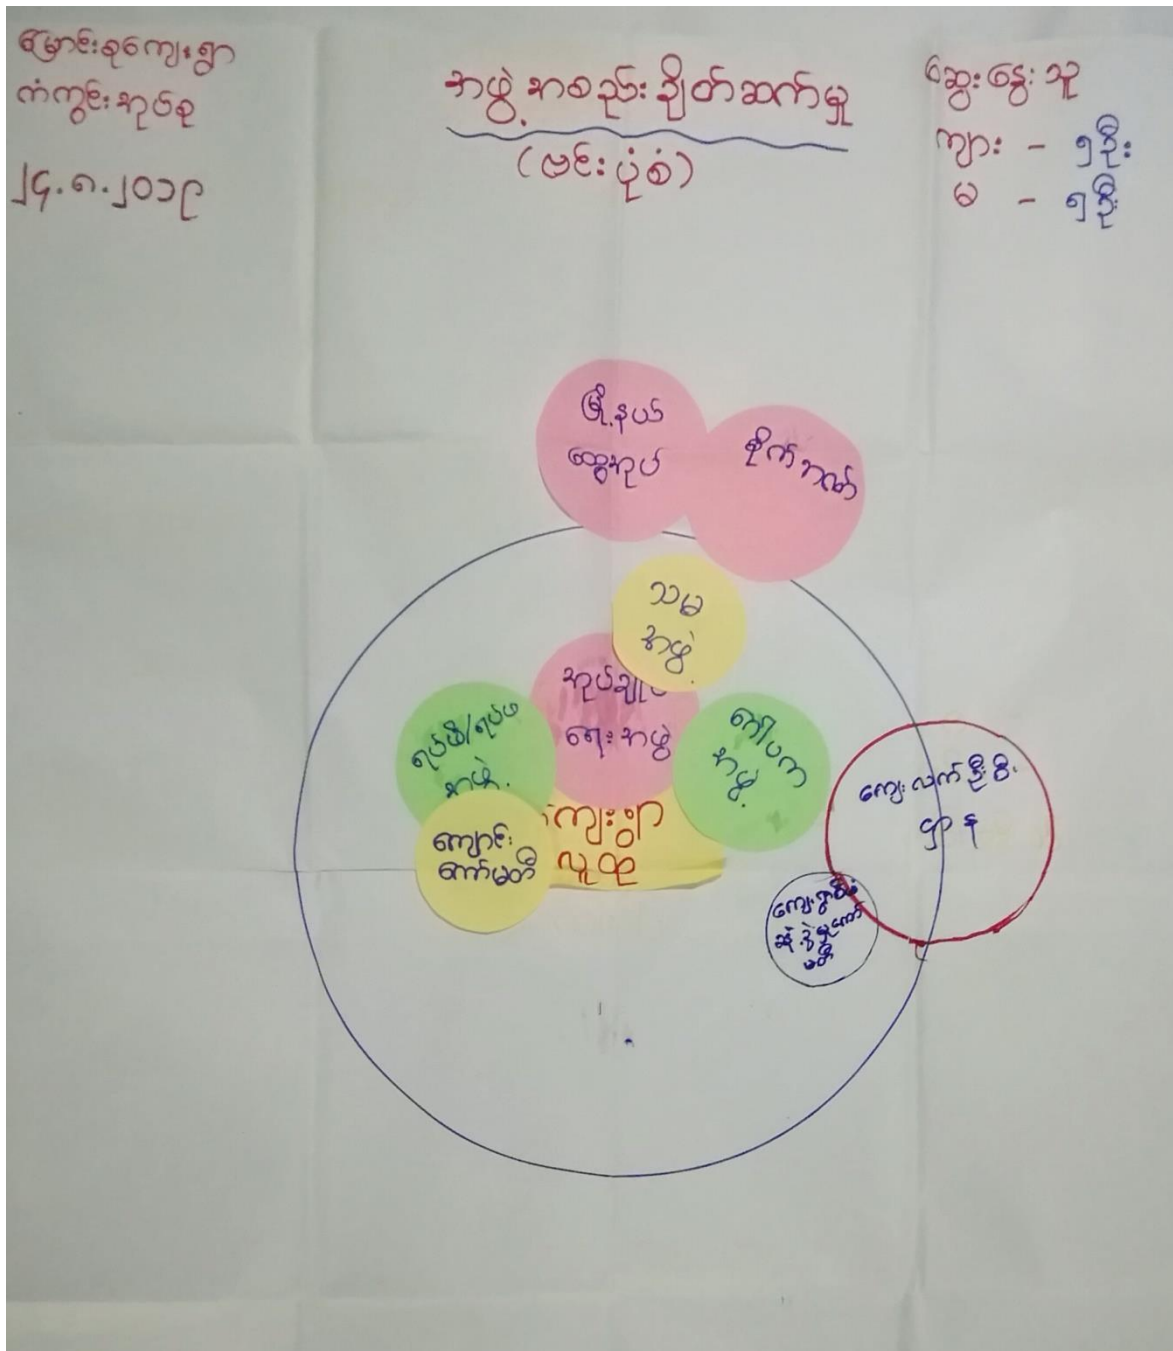 မြောင်းစုကျေးရွာ
ကံကွင်းအုပ်စု
၂၄.၈.၂၀၁၉
အဖွဲ့အစည်းချိတ်ဆက်မှု
(ဗင်းပုံစံ)
ဆွေးနွေးသူ
ကျား - ၅ဦး
မ - ၅ဦး
မြို့နယ်
ထွေအုပ်
စိုက်ဘဏ်
သမ
အဖွဲ့
အုပ်ချုပ်
ရေးအဖွဲ့
ရပ်မိ/ရပ်ဖ
အဖွဲ့
ဂေါပက
အဖွဲ့
ကျေးရွာ
လူထု
ကျောင်း
ကော်မတီ
ကျေးလက်ဦးစီး
ဌာန